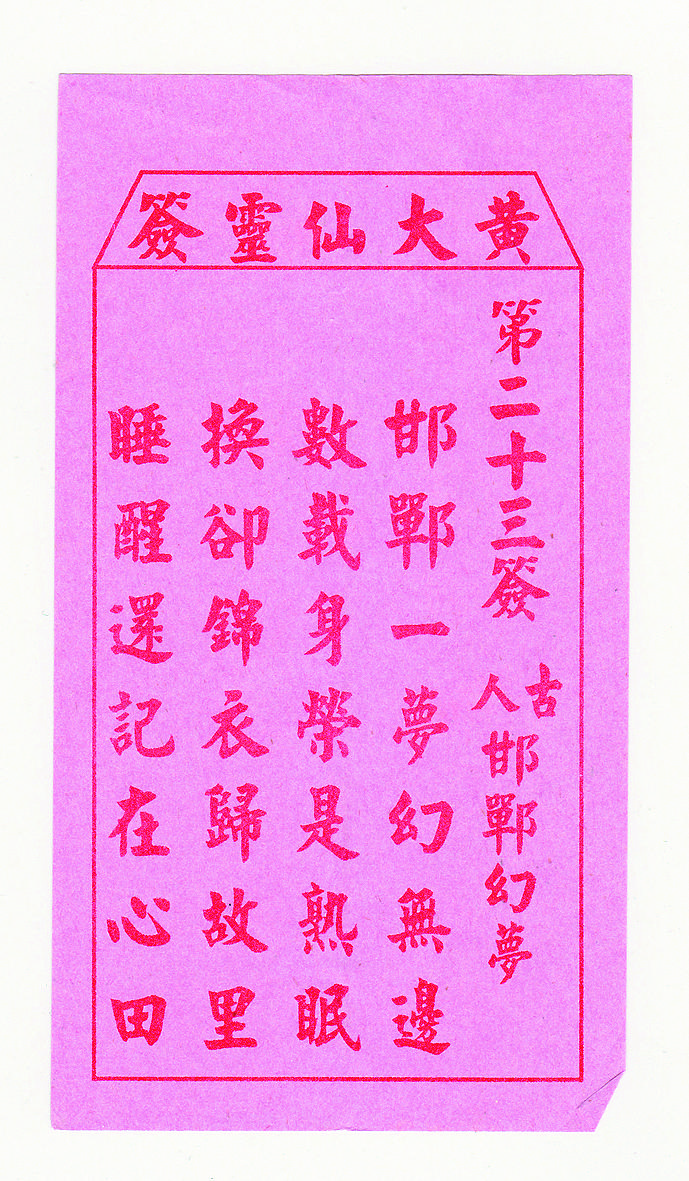 黃大仙靈簽
第二十三簽 古人邯鄲幻夢
邯鄲一夢幻無邊
數載身榮是熟眠
換卻錦衣歸故里
睡醒還記在心田